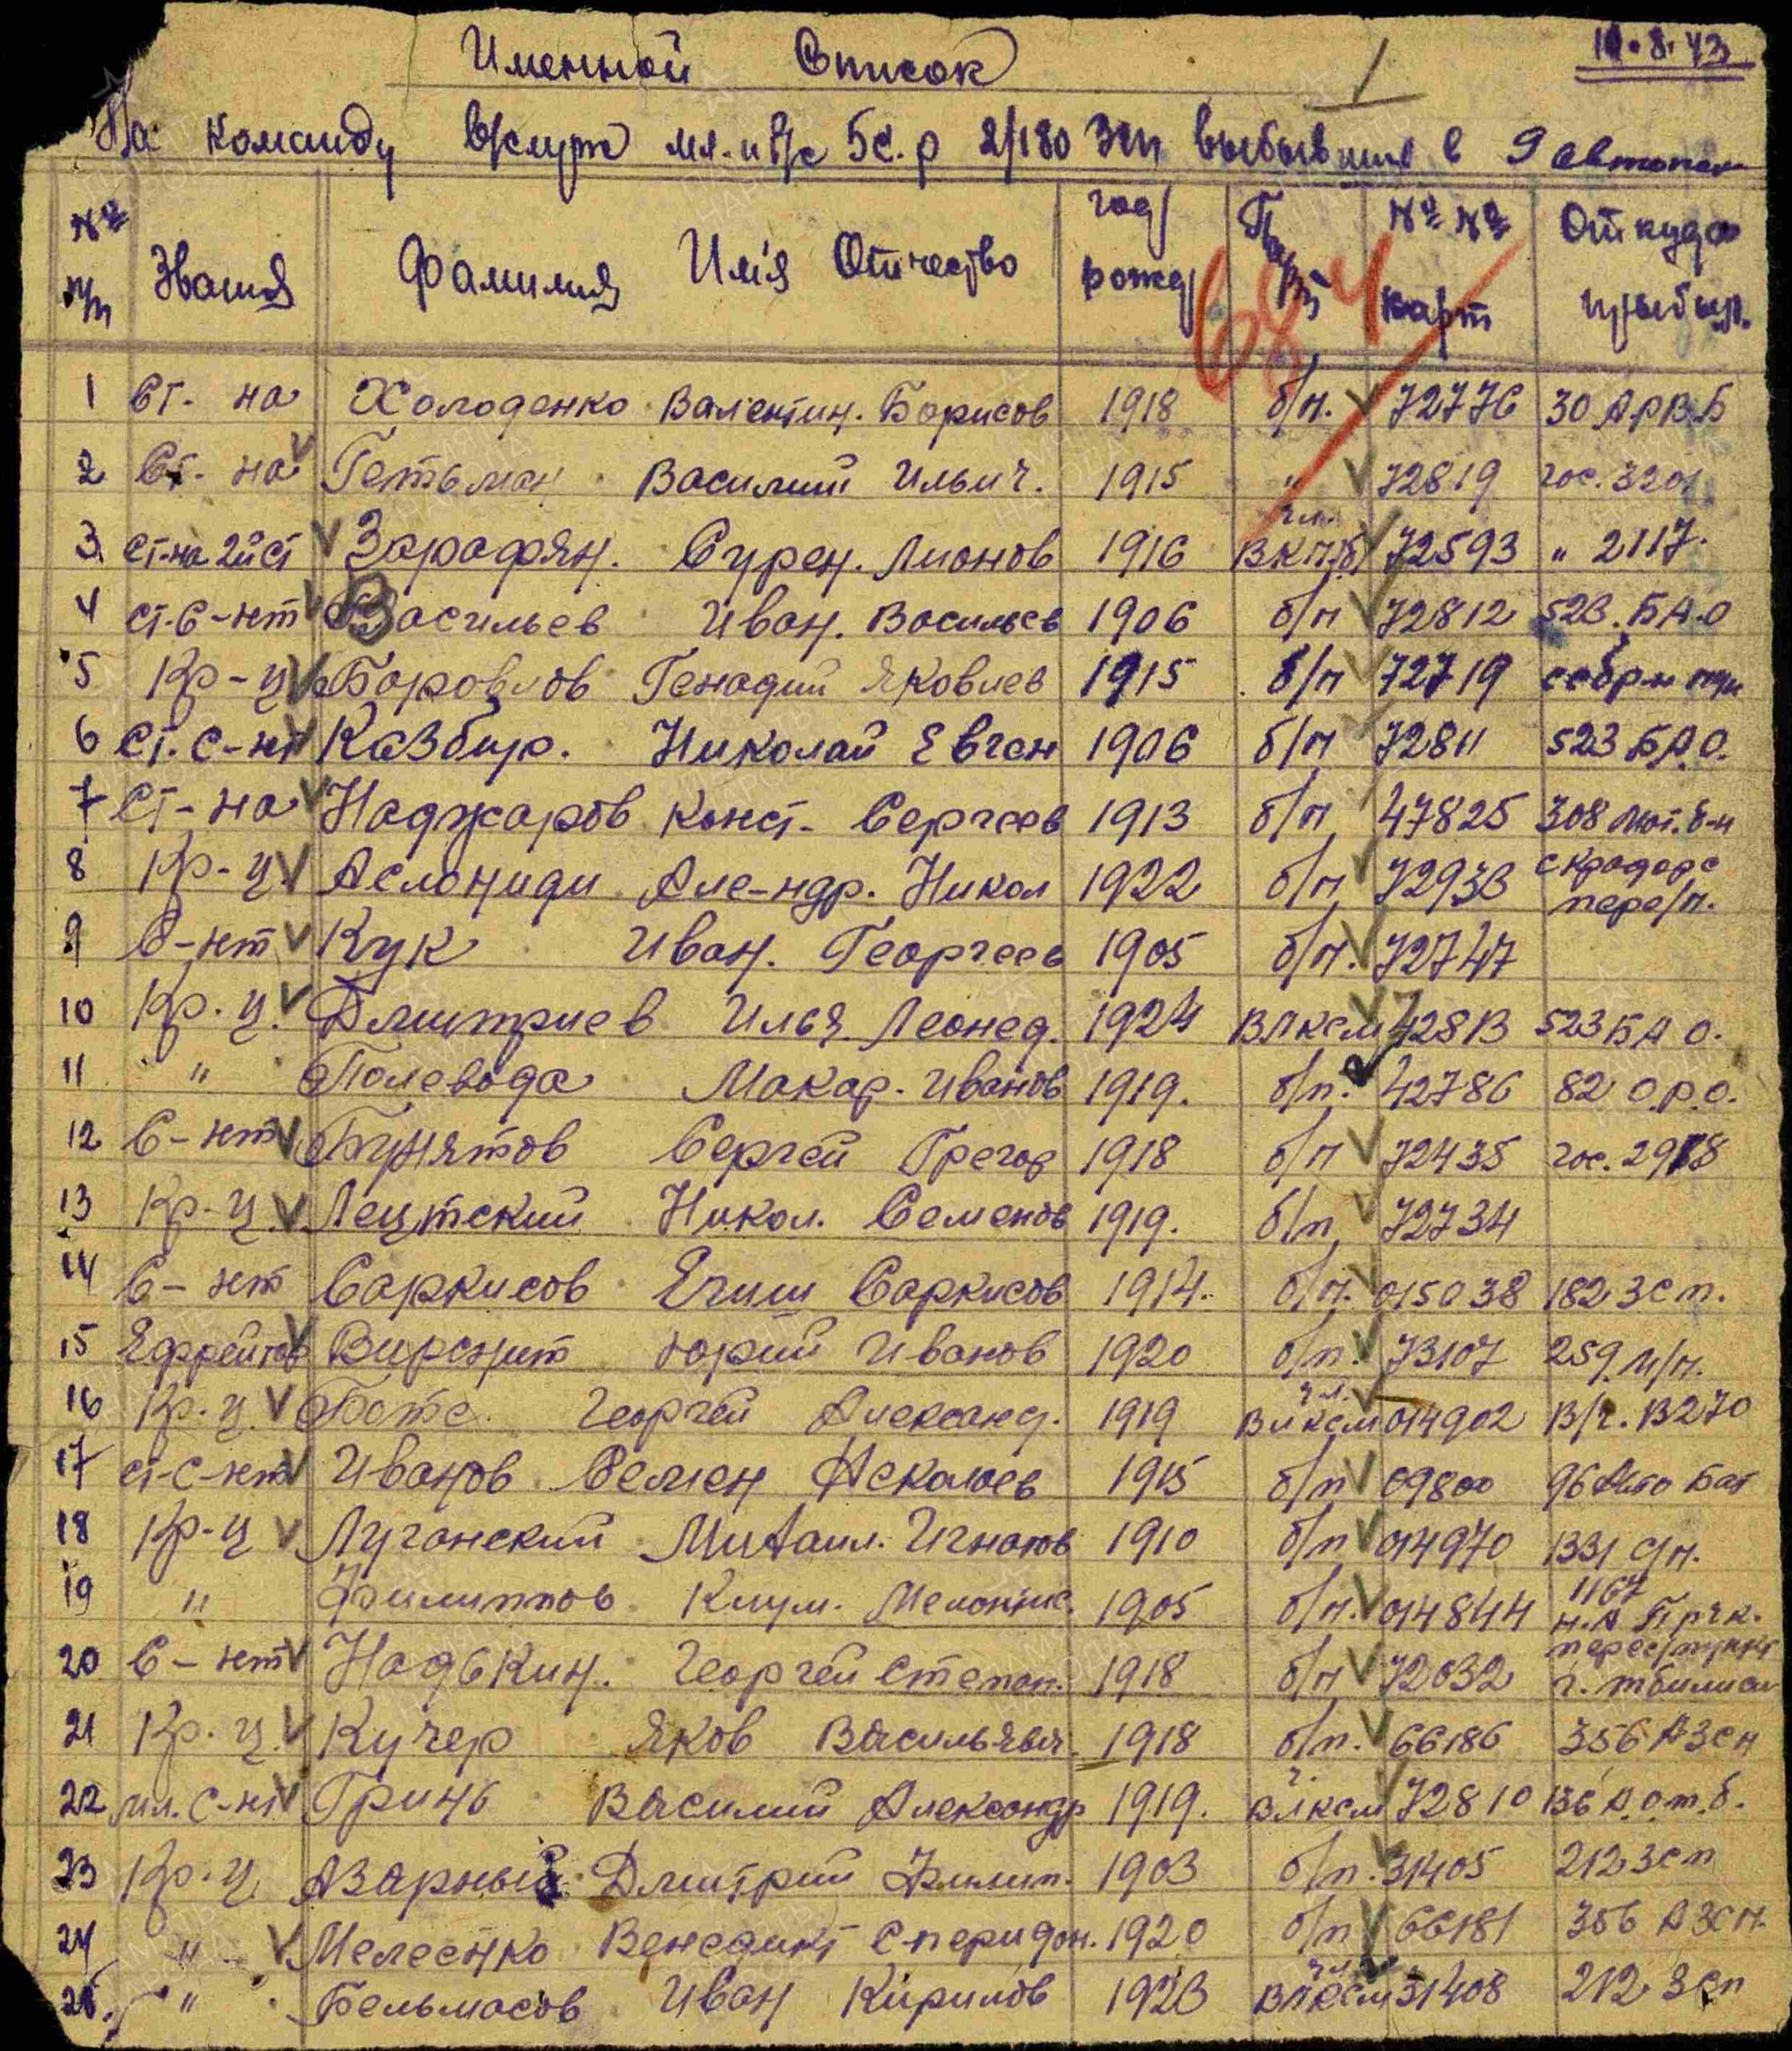 10.8.43
Именной Список
На команду в/служ мл. н/с 5 с.р 2/180 Зсп выбывших в 9 автополк
№№ п/п Звания Фамилия Имя Отчество год рожд Парт №№ карт Откуда прибыл.
684
1 Ст-на Холоденко Валентин. Борисов 1918 б/п. 72776 30 АРВБ
2 Ст-на Гетьман Василий Ильич. 1915 " 72819 гос. 3201
3 ст-на 2й ст Зарафян. Сурен. Лионов 1916 чл. ВКП(б) 72593 " 2117.
4 ст-с-нт Васильев Иван. Васильев 1906 б/п 72812 523. БАО
5 Кр-ц Боровлов Генадий Яковлев 1915 б/п 72719 собрн пун
6 Ст. с-нт Казбир. Николай Евген 1906 б/п 72811 523 БАО.
7 Ст-на Наджаров Конст- Сергеев 1913 б/п 47825 308 б-н
8 Кр-ц. Аслониди Але-ндр. Никол 1922 б/п 72933 с Крадарс пере/п.
9 С-нт Кук Иван. Георгеев 1905 б/п. 72747
10 Кр.ц. Дмитриев Илья. Леонед. 1924 ВЛКСМ 42813 523 БАО.
11 " Полевода Макар. Иванов 1919. б/п. 42786 82 О.Р.О.
12 С-нт Бунятов Сергей Грегор 1918 б/п 72435 гос. 2978
13 Кр-ц. Леутский Никол. Семенов 1919. б/п 72734
14 С-нт Саркисов Егиш Саркисов 1914. б/п. 015038 182 Зсп.
15 Ефрейтор Вирсчит Юрий Иванов 1920 б/п. 73107 259 п/п.
16 Кр.ц. Ботс Георгей Александ. 1919 чл. ВЛКСМ 014902 В/ч. В270
17 ст-с-нт Иванов Семен Аскалоев 1915 б/п 09800 96 Авто Бат
18 Кр-ц Луганский Михаил. Игнатов 1910 б/п 014970 1331 с/п.
19 " Филиппов Клим. 1905 б/п. 014844 1167 н.А
20 С-нт Надькин. Георгей Степан. 1918 б/п 72032 перес/пункт г. тбилиси
21 Кр.ц. Кучер Яков Васильяья. 1918 б/п. 66186 356 АЗСП
22 мл. с-нт Гринь Василий Александр 1919. ч. ВЛКСМ 72810 136 А.О.т.б.
23 Кр.ц. Азарный Дмитрий Филип. 1903 б/п. 31405 212 Зсп
24 " Мелестко Венедикт Сперидон. 1920 б/п 66181 356 АЗСП.
25. " Бельмасов Иван Кирилов 1923 чл. ВЛКСМ 31408 212 Зсп